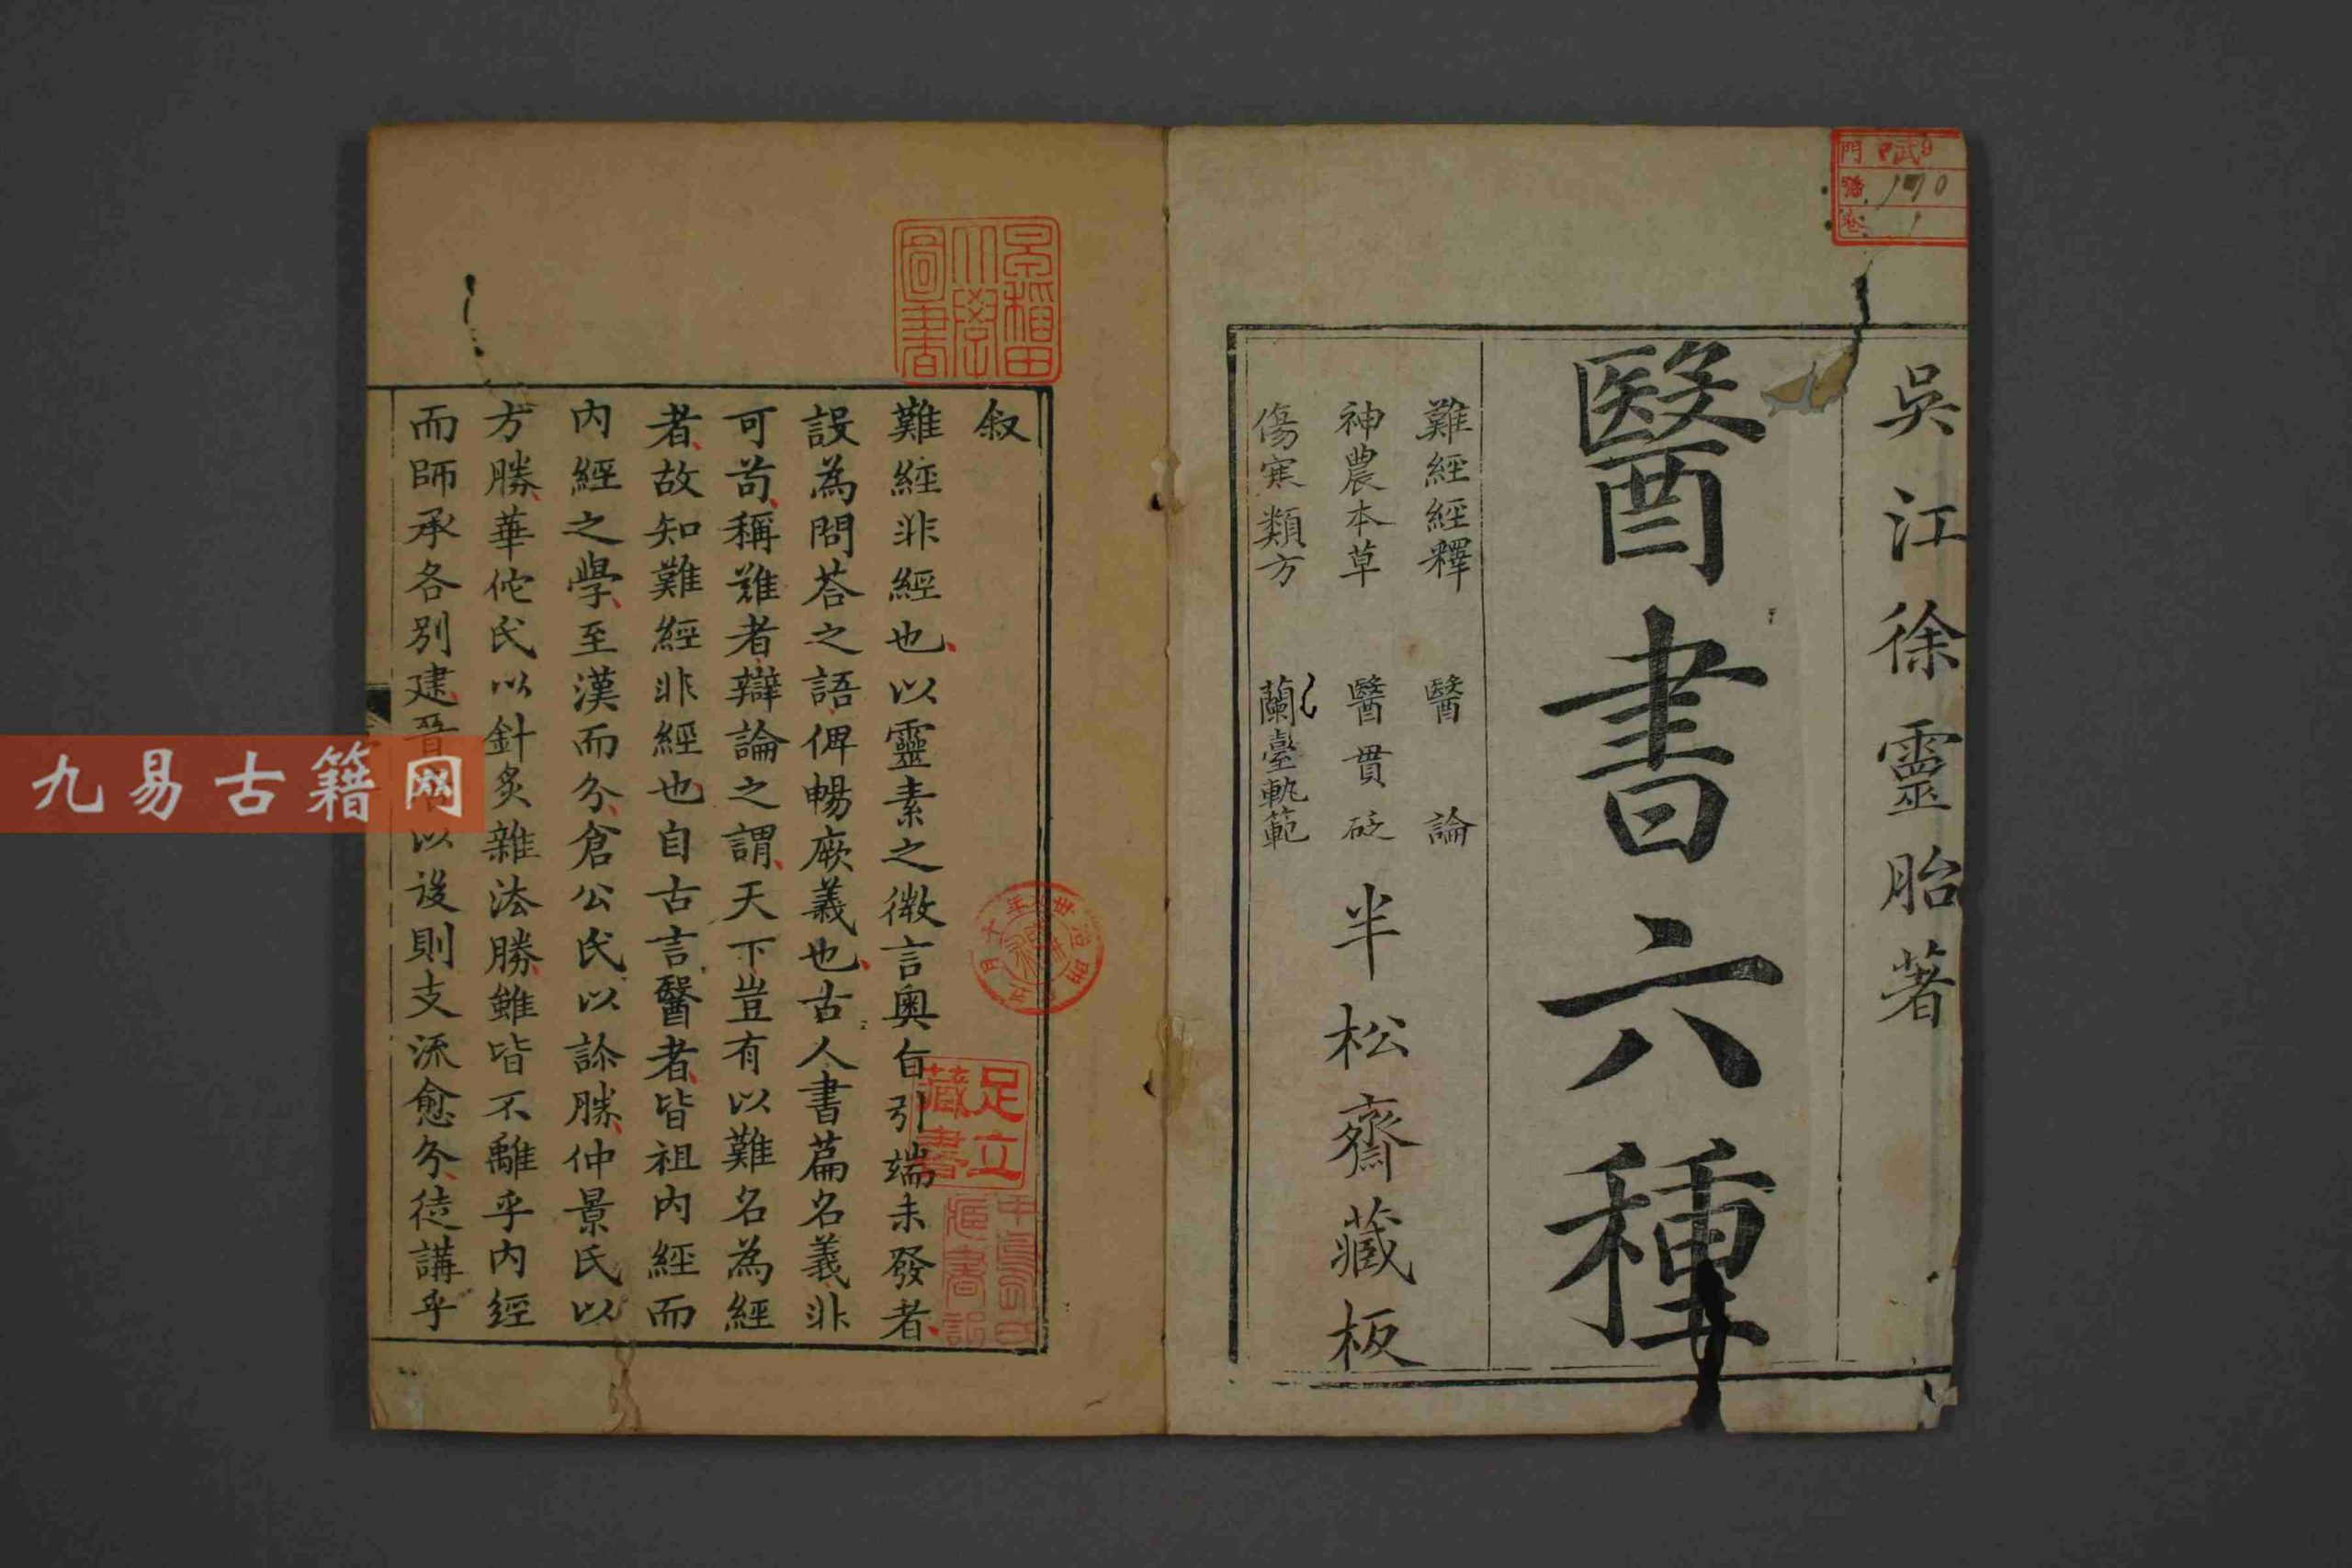 吳江徐靈胎著
醫書六種
難經經釋 醫論
神農本草 醫貫砭
傷寒類方 蘭臺軌範
半松齋藏板
叙
難經非經也以靈素之微言奧旨引端未發者
設為問荅之語俾暢厥義也古人書篇名義非
可苟稱難者辯論之謂天下豈有以難名為經
者故知難經非經也自古言醫者皆祖內經而
內經之學至漢而分倉公氏以診勝仲景氏以
方勝華佗氏以針灸雜法勝雖皆不離乎內經
而師承各別建晉 以後則支流愈分徒講乎
早稻田大學圖書
足立藏書
門
號 170
卷 1
九易古籍网